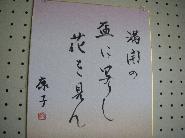 満開の
盃に写し
花を見ん
康子